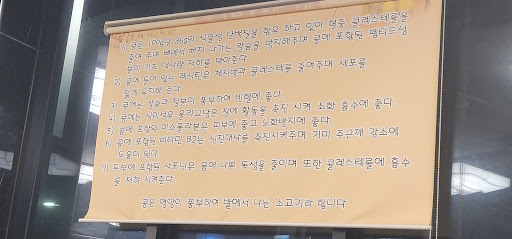 1) 콩은 100g당 36g의 식물성 단백질을 함유 하고 있어 혈중 콜레스테롤을
줄여 주며 뼈에서 빠져 나가는 칼슘을 방지해주며 콩에 포함된 펩티드성
분이 기초 대사량 저하를 막아준다
2) 콩에 들어 있는 레시틴은 체지방과 콜레스테롤 줄여주며 세포를
젊게 유지해 준다
3) 콩에는 칼슘과 철분이 풍부하여 빈혈에 좋다.
4) 콩에는 식이섬유 올리고당은 장에 활동을 촉진 시켜 소화 흡수에 좋다.
5) 콩에 포함된 이소플라본은 피부에 좋고 노화방지에 좋다.
6) 콩에 포함된 비타민 B2는 신진대사를 촉진시켜주며 기미 주근깨 감소에
도움이 된다
7) 두부에 포함된 사포닌은 몸에 나쁜 독성을 줄이며 또한 콜레스테롤에 흡수
를 저하 시켜준다
콩은 영양이 풍부하여 밭에서 나는 소고기라 합니다